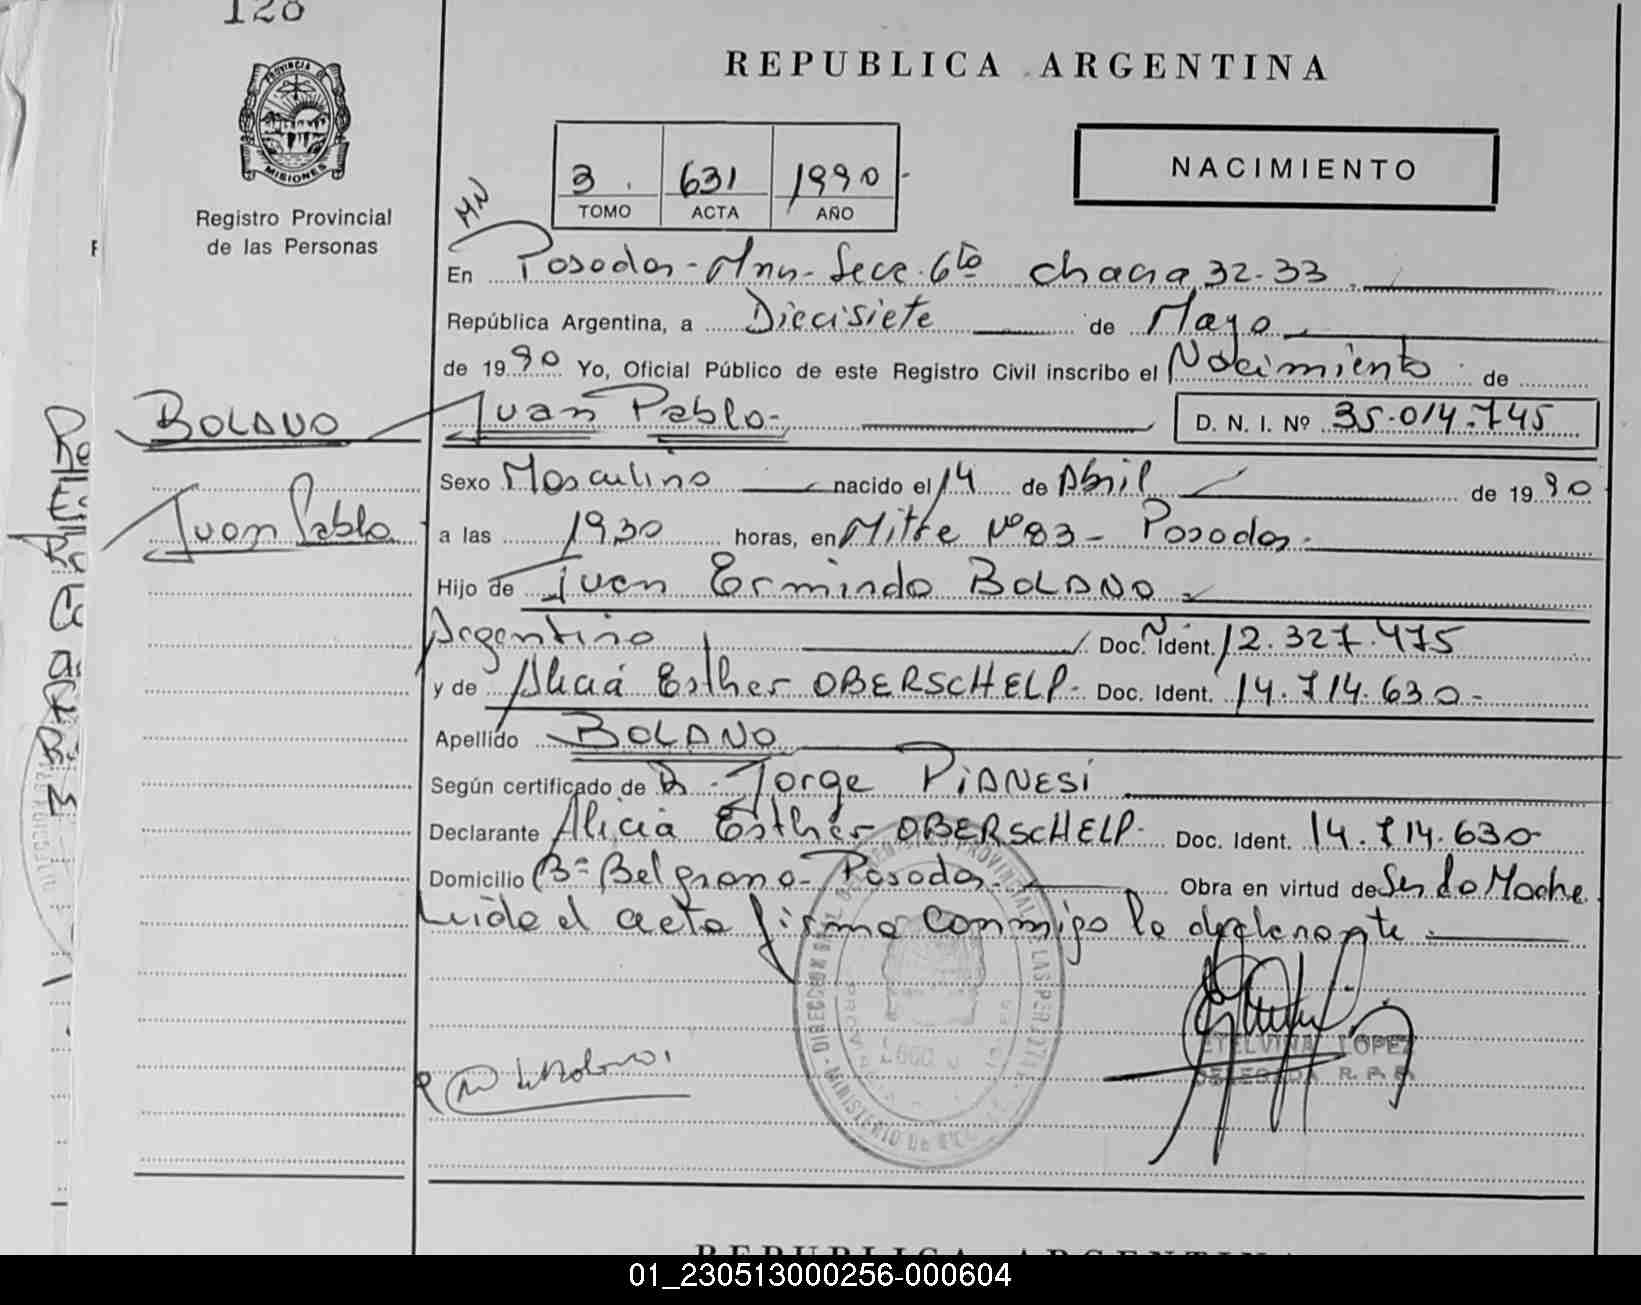 128
REPUBLICA ARGENTINA
PROVINCIA DE
MISIONES
Registro Provincial
de las Personas
3
631
1990
TOMO
ACTA
AÑO
NACIMIENTO
En Posadas - Mnes - Secc. 6ta chacra 32-33
República Argentina, a Diecisiete de Mayo
de 1990 Yo, Oficial Público de este Registro Civil inscribo el Nacimiento de
BOLANO
Juan Pablo
Juan Pablo
D. N. I. Nº 35.014.745
Sexo Masculino nacido el 14 de Abril de 1990
a las 1930 horas, en Mitre Nº 83 - Posadas.
Hijo de Juan Ermindo BOLANO
Argentino Doc. Ident. 12.327.475
y de Alicia Esther OBERSCHELP - Doc. Ident. 14.714.630-
Apellido BOLANO
Según certificado de Dr. Jorge PIANESI
Declarante Alicia Esther OBERSCHELP - Doc. Ident. 14.714.630-
Domicilio Bº Belgrano - Posadas. Obra en virtud de Ser la Madre
Leída el acta firma conmigo la declarante.
ETELVINA LOPEZ
DELEGADA R. P. P.
REPUBLICA ARGENTINA
01_230513000256-000604